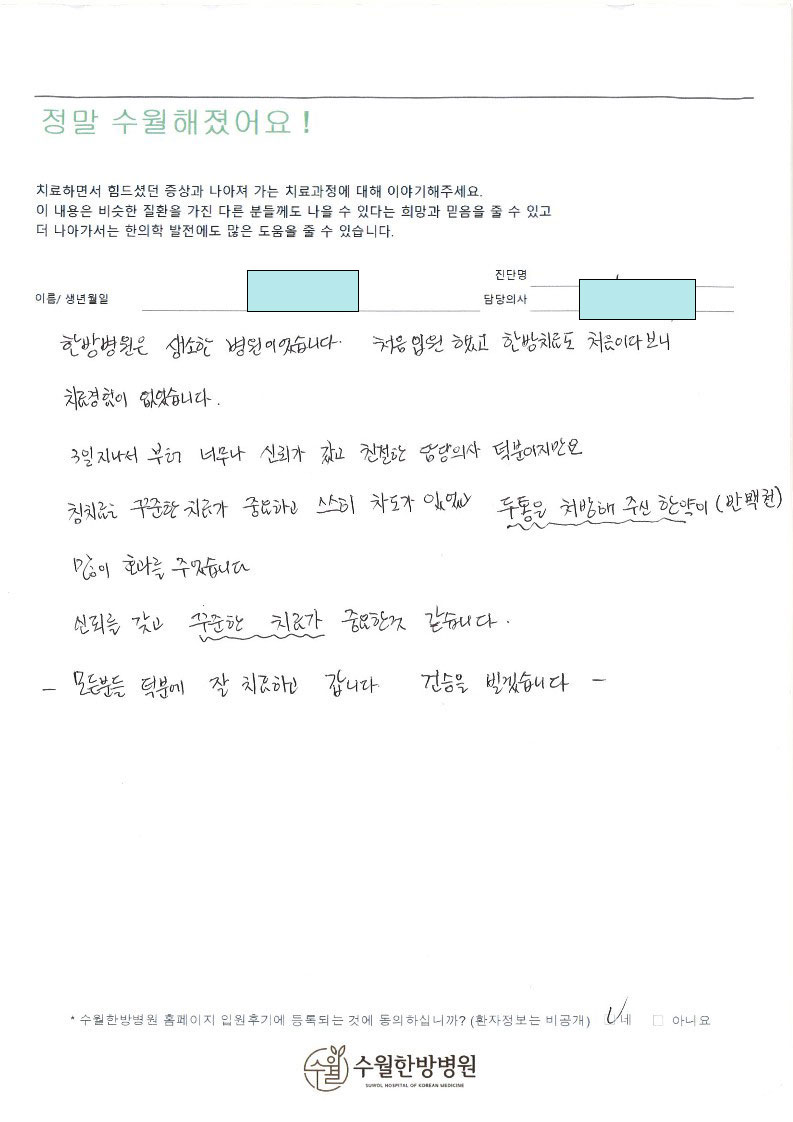 정말 수월해졌어요!
치료하면서 힘드셨던 증상과 나아져 가는 치료과정에 대해 이야기해주세요.
이 내용은 비슷한 질환을 가진 다른 분들께도 나을 수 있다는 희망과 믿음을 줄 수 있고
더 나아가서는 한의학 발전에도 많은 도움을 줄 수 있습니다.
진단명
이름/ 생년월일
담당의사
한방병원은 생소한 병원이었습니다. 처음 입원 하였고 한방치료도 처음이다보니
치료경험이 없었습니다.
3일지나서 부터 너무나 신뢰가 갔고 친절한 담당의사 덕분이지만요
침치료는 꾸준한 치료가 중요하고 스스히 차도가 있었 두통을 처방해 주신 한약이 (반백천)
많이 효과를 주었습니다
신뢰를 갖고 꾸준한 치료가 중요한것 같습니다.
- 모든분들 덕분에 잘 치료하고 갑니다 건승을 빌겠습니다 -
* 수월한방병원 홈페이지 입원후기에 등록되는 것에 동의하십니까? (환자정보는 비공개) 네 아니요
수월 수월한방병원
SUWOL HOSPITAL OF KOREAN MEDICINE